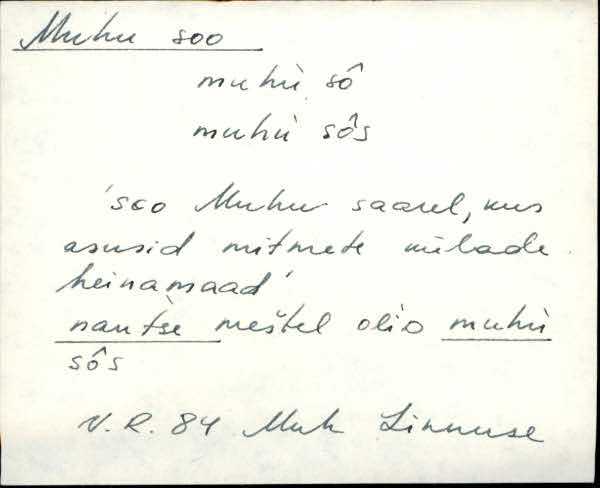 Muhu soo
muhù sô
muhù sôs
'soo Muhu saarel, kus
asusid mitmete külade
heinamaad'
nautse meštel olid muhù
sôs
V. R. 84 Muh Linnuse